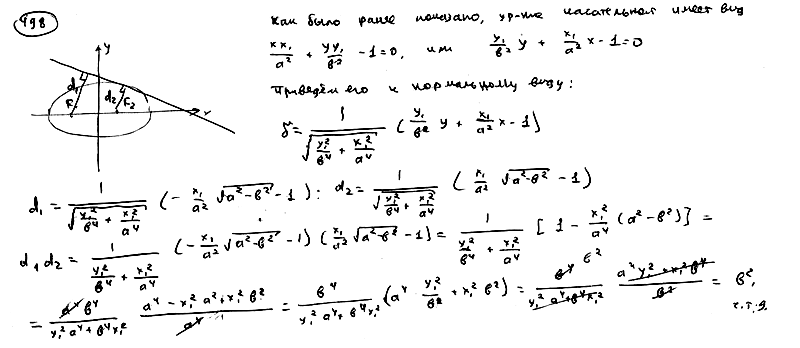 498
Как было ранее показано, ур-ние касательной имеет вид
xx₁/a² + yy₁/b² - 1 = 0, или y₁/b² y + x₁/a² x - 1 = 0
Приведём его к нормальному виду:
δ = 1/√(y₁²/b⁴ + x₁²/a⁴) (y₁/b² y + x₁/a² x - 1)
y
x
d₁
d₂
F₁
F₂
d₁ = 1/√(y₁²/b⁴ + x₁²/a⁴) (- x₁/a² √(a²-b²) - 1); d₂ = 1/√(y₁²/b⁴ + x₁²/a⁴) (x₁/a² √(a²-b²) - 1)
d₁d₂ = 1/(y₁²/b⁴ + x₁²/a⁴) (- x₁/a² √(a²-b²) - 1) (x₁/a² √(a²-b²) - 1) = 1/(y₁²/b⁴ + x₁²/a⁴) [1 - x₁²/a⁴ (a²-b²)] =
= a⁴b⁴/(y₁²a⁴ + b⁴x₁²) (a⁴ - x₁²a² + x₁²b²)/a⁴ = b⁴/(y₁²a⁴ + b⁴x₁²) (a⁴ y₁²/b² + x₁² b²) = b⁴ b²/(y₁²a⁴ + b⁴x₁²) (a⁴y₁² + x₁²b⁴)/b² = b²,
ч.т.д.